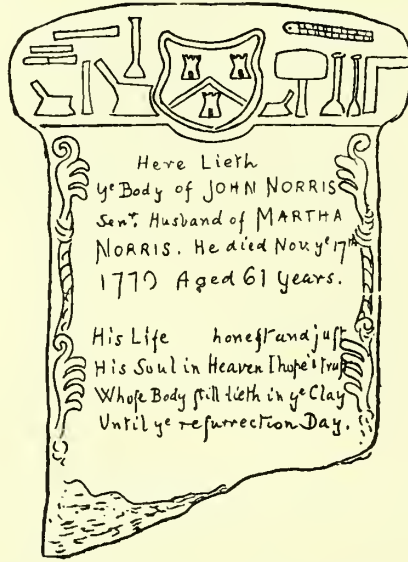 Here Lieth
yᵉ Body of JOHN NORRIS
Senʳ. Husband of MARTHA
NORRIS. He died Nov. yᵉ 17ᵗʰ
Aged 61 Years.
His Life honeſt and juſt
His Soul in Heaven I hope & truſt
Whoſe Body ſtill lieth in yᵉ Clay
Until yᵉ reſurrection Day.